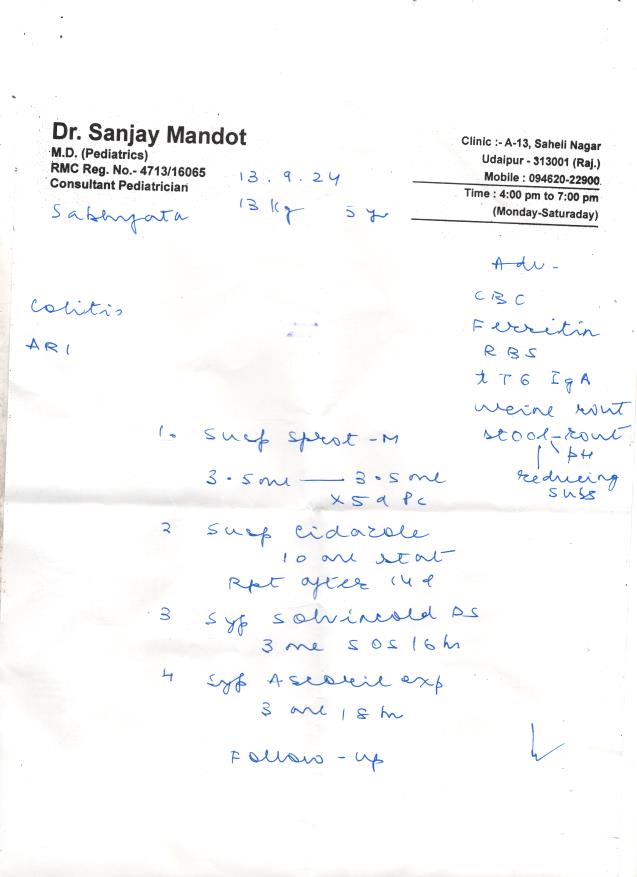 Dr. Sanjay Mandot
M.D. (Pediatrics)
RMC Reg. No.- 4713/16065
Consultant Pediatrician
Clinic :- A-13, Saheli Nagar
Udaipur - 313001 (Raj.)
Mobile : 094620-22900
Time : 4:00 pm to 7:00 pm
(Monday-Saturaday)
13.9.24
Sabhyata 13 kg 5 yr
Adv -
CBC
Ferritin
RBS
tTG IgA
urine rout
stool-rout
pH
reducing
subs
Colitis
ARI
1. Susp Sprot-M
3.5ml — 3.5ml
x 5d Pc
2 Susp Cidazole
10 ml stat
Rpt after 14d
3 Syp Solvincold DS
3 ml SOS 16hr
4 Syp Ascoril exp
3 ml 18hr
Follow-up